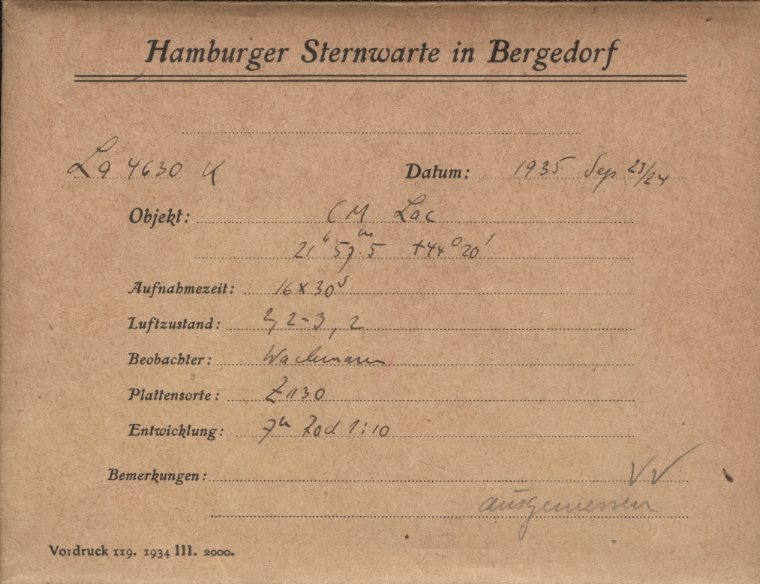 Hamburger Sternwarte in Bergedorf
La 4630 K Datum: 1935 Sep 23/24
Objekt: CM Lac
21ʰ 57ᵐ.5 +44° 20'
Aufnahmezeit: 16 x 30ˢ
Luftzustand: 2, 2-3, 2
Beobachter: Wachmann
Plattensorte: Zu30
Entwicklung: 7ᵐ Rod 1:10
Bemerkungen: VV
ausgemessen
Vordruck 119. 1934 III. 2000.